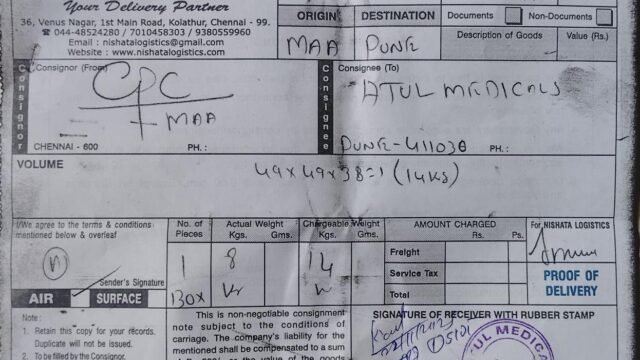 Your Delivery Partner
36, Venus Nagar, 1st Main Road, Kolathur, Chennai - 99.
☎ 044-48524280 / 7010458303 / 9380559960
Email : nishatalogistics@gmail.com
Website : www.nishatalogistics.com
ORIGIN DESTINATION
MAA PUNE
Documents Non-Documents
Description of Goods Value (Rs.)
Consignor
Consignor (From)
CPC
MAA
CHENNAI - 600 PH. :
Consignee
Consignee (To)
ATUL MEDICALS
PUNE-411038 PH. :
VOLUME
49x49x38=1 (14KS)
I/We agree to the terms & conditions
mentioned below & overleaf
Sender's Signature
AIR SURFACE
No. of Pieces
1
BOX
Actual Weight
Kgs. Gms.
8
Chargeable Weight
Kgs. Gms.
14
AMOUNT CHARGED
Rs. Ps.
Freight
Service Tax
Total
For NISHATA LOGISTICS
PROOF OF
DELIVERY
Note :
1. Retain this copy for your records.
Duplicate will not be issued.
2. To be filled by the Consignor.
This is non-negotiable consignment
note subject to the conditions of
carriage. The company's liability for
the mentioned shall be compensated to a sum
SIGNATURE OF RECEIVER WITH RUBBER STAMP